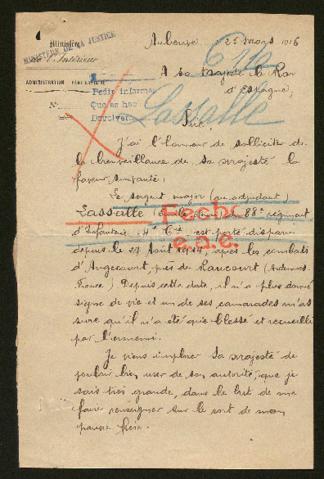 Ministère
MINISTÈRE DE LA JUSTICE
de l'Intérieur
ADMINISTRATION PÉNITENTIAIRE
Auberive, 25 mars 1916
A sa Majesté le Roi
d'Espagne
Pedir informe
Que se hac
Devolver
N°
Lassalle
Sire.
J'ai l'honneur de solliciter de
la bienveillance de sa majesté la
faveur suivante:
Le sergent major (ou adjudant)
Lassalle 88e régiment
d'Infanterie 4e Cie est porté disparu
depuis le 27 Août 1914, après les combats
d'Angecourt, près de Raucourt (Ardennes
France) Depuis cette date, il n'a plus donné
signe de vie et un de ses camarades m'as
sure qu'il n'a été que blessé et recueilli
par l'ennemi.
Fecho
Je viens implorer sa majesté de
vouloir bien user de son autorité, que je
sais très grande, dans le but de me
faire renseigner sur le sort de mon
pauvre frère.